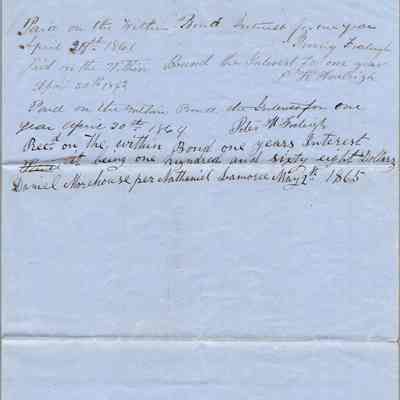 Paid on the Within Bond Interest for one year
April 28th 1861
Paid on the Within Bound the Interest to one year
Apri 20th 1863
Paid on the Within Bond the Interest for one
year April 20th 1864 Peter H
Recd on the within Bond one years Interest
it being one hundred and sixty eight Dollars
Daniel Morehouse per Nathaniel Lamoree May 1st 1865